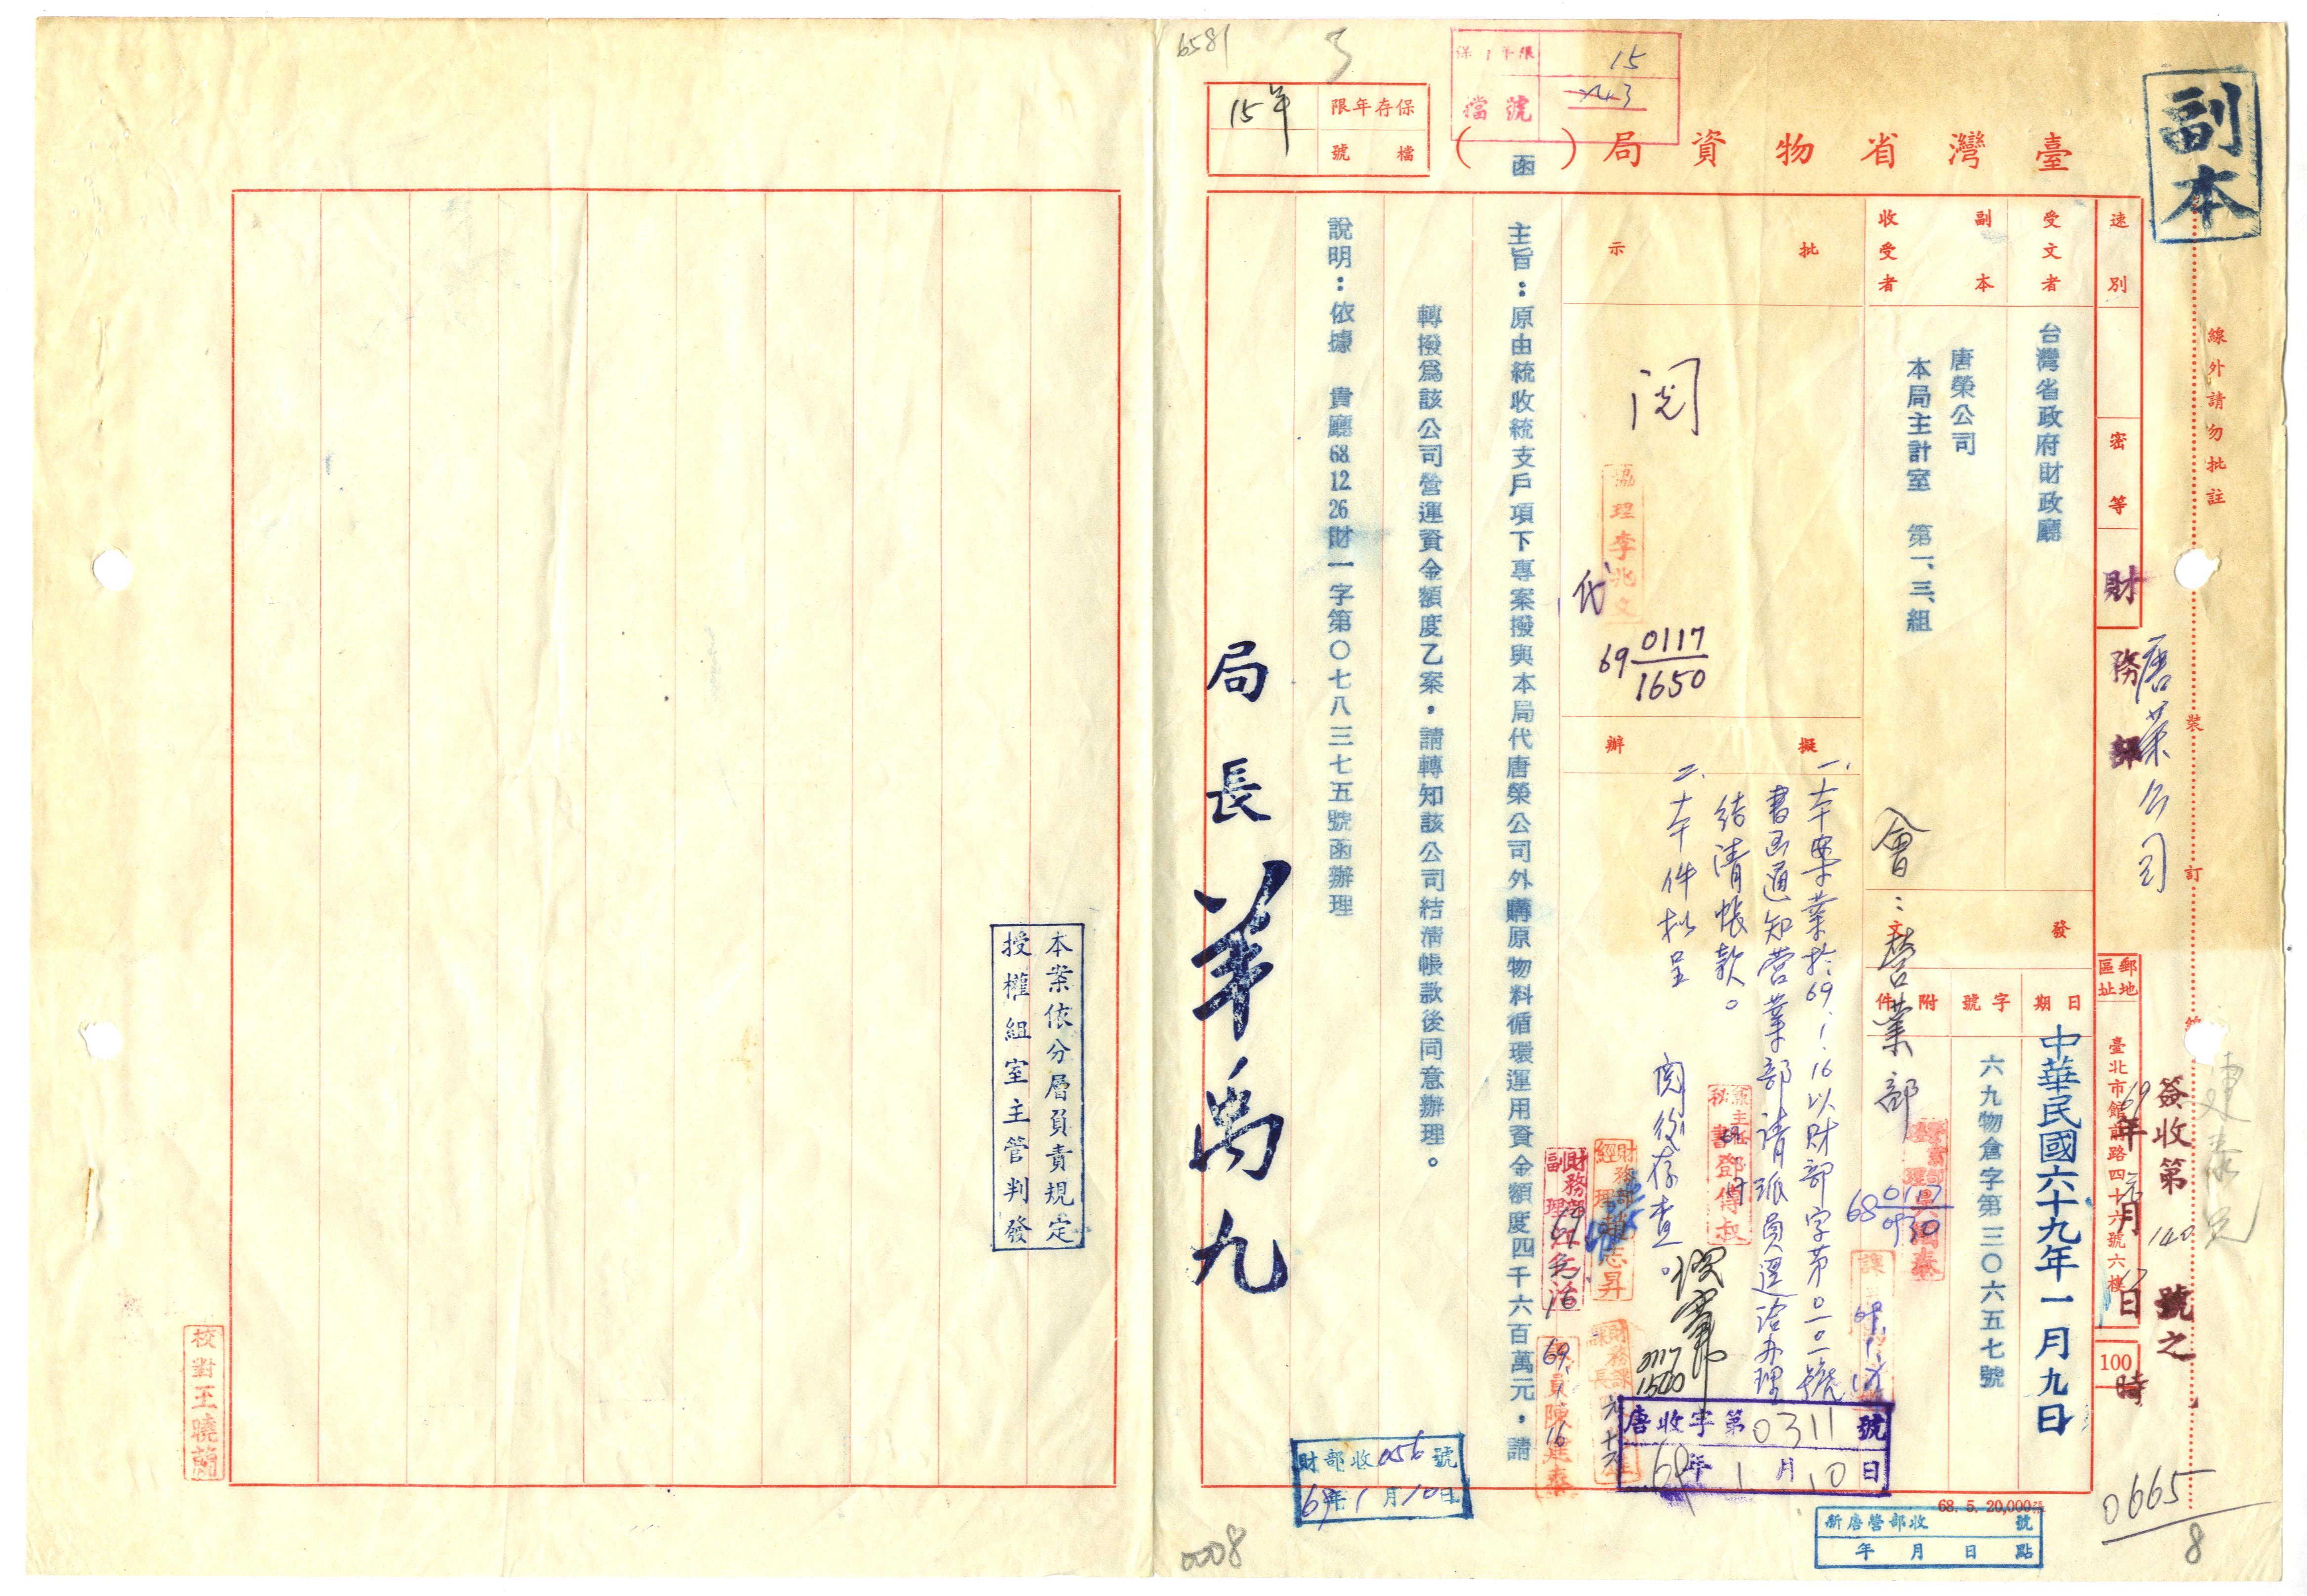 副本
線外請勿批註
裝
訂
臺灣省物資局（函）
保存年限
15年
檔號
保存年限
15
檔號
6581
速別
密等
財務部
唐榮公司
郵區
地址
臺北市館前路四十六號六樓
100
簽收第140號之
69年元月
日
時
受文者
台灣省政府財政廳
副本收受者
唐榮公司
本局主計室　第一、三組
發文
日期
中華民國六十九年一月九日
字號
六九物倉字第三〇六五七號
附件
會：營業部
批示
閱
協理李兆文
代
69 0117
1650
擬辦
一、本案業於69.1.16以財部字第0一0一號
書函通知營業部請派員逕洽办理
結清帳款。
二、本件擬呈　閱後存查。
0117
1500
主旨：原由統收統支戶項下專案撥與本局代唐榮公司外購原物料循環運用資金額度四千六百萬元，請
轉撥爲該公司營運資金額度乙案，請轉知該公司結清帳款後同意辦理。
說明：依據　貴廳68.12.26財一字第〇七八三七五號函辦理
局長　羊禹九
唐收字第0311號
69年1月10日
財部收056號
69年1月10日
68. 5. 20,000張
新唐營部收　號
年　月　日　點
0665
8
0008
本案依分層負責規定
授權組室主管判發
校對王曉蘭